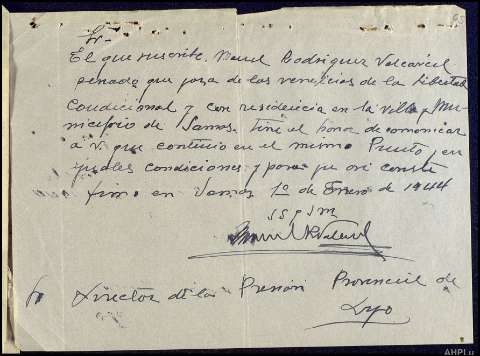 95
Sr-
El que suscribe. Manuel Rodriguez Valcarcel
penado que joza de los veneficios de la libertad
Condicional y con residencia en la villa y Mu-
nicipio de Samos. Tine el honor de comonicar
a V. que continuo en el mismo Punto y en
jguales condiciones y para que asi conste
firmo en Samos 1º de Enero de 1944
S S q S M
Manuel R Valcarcel
Sr Director de la Presion Provincial de
Lugo
AHPLu